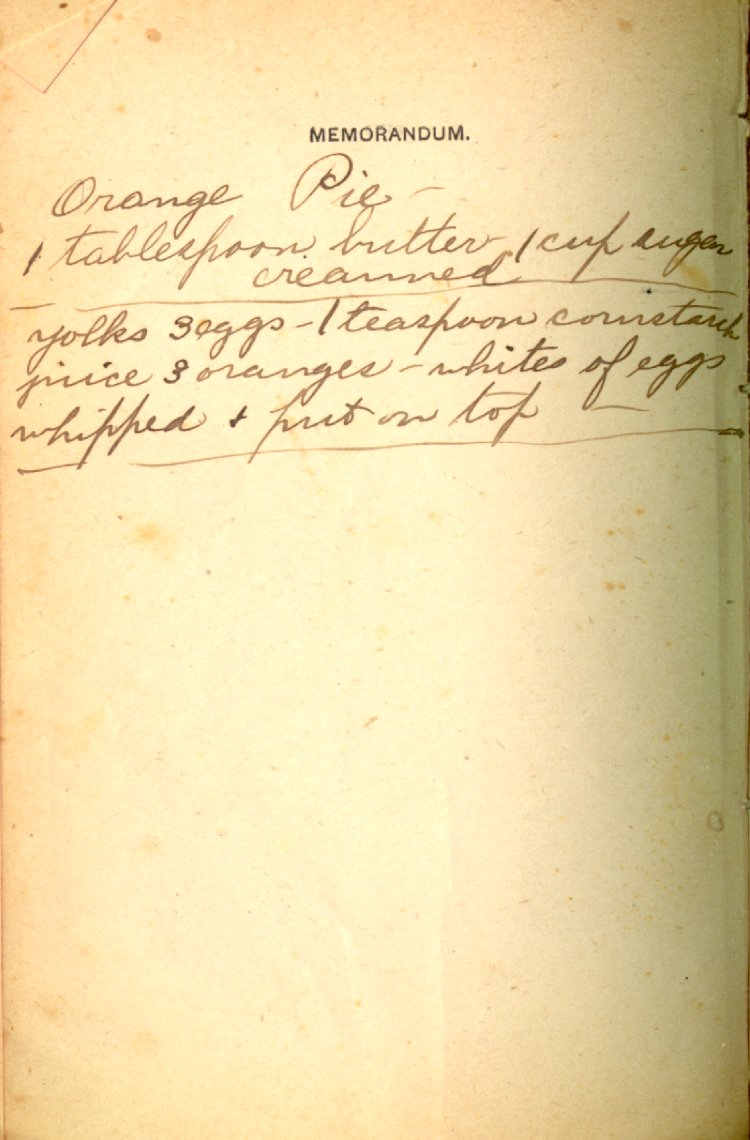 MEMORANDUM.
Orange Pie -
1 tablespoon butter - 1 cup sugar
creamed
yolks 3 eggs - 1 teaspoon cornstarch
juice 3 oranges - whites of eggs
whipped + put on top -